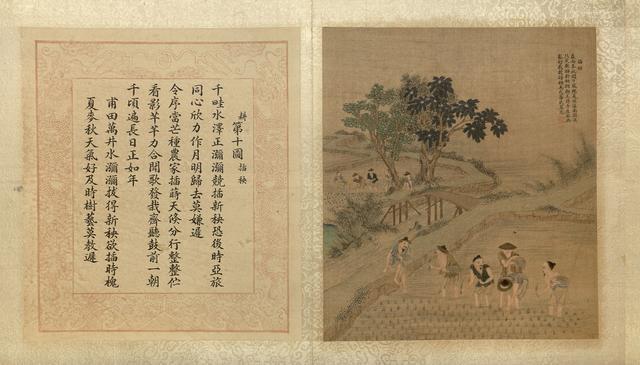 耕第十圖 插秧
千畦水澤正瀰瀰競插新秧恐後時亞旅
同心欣力作月明歸去莫嫌遲
令序當芒種農家插蒔天倏分行整整佇
看影芊芊力合聞歌發栽齊聽鼓前一朝
千頃遍長日正如年
甫田萬井水瀰瀰拔得新秧欲插時槐
夏麥秋天氣好及時樹藝莫教遲
插秧